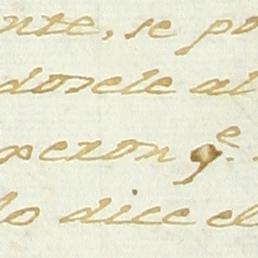 nte, se po
dosele al
sexon qe.
lo dice el